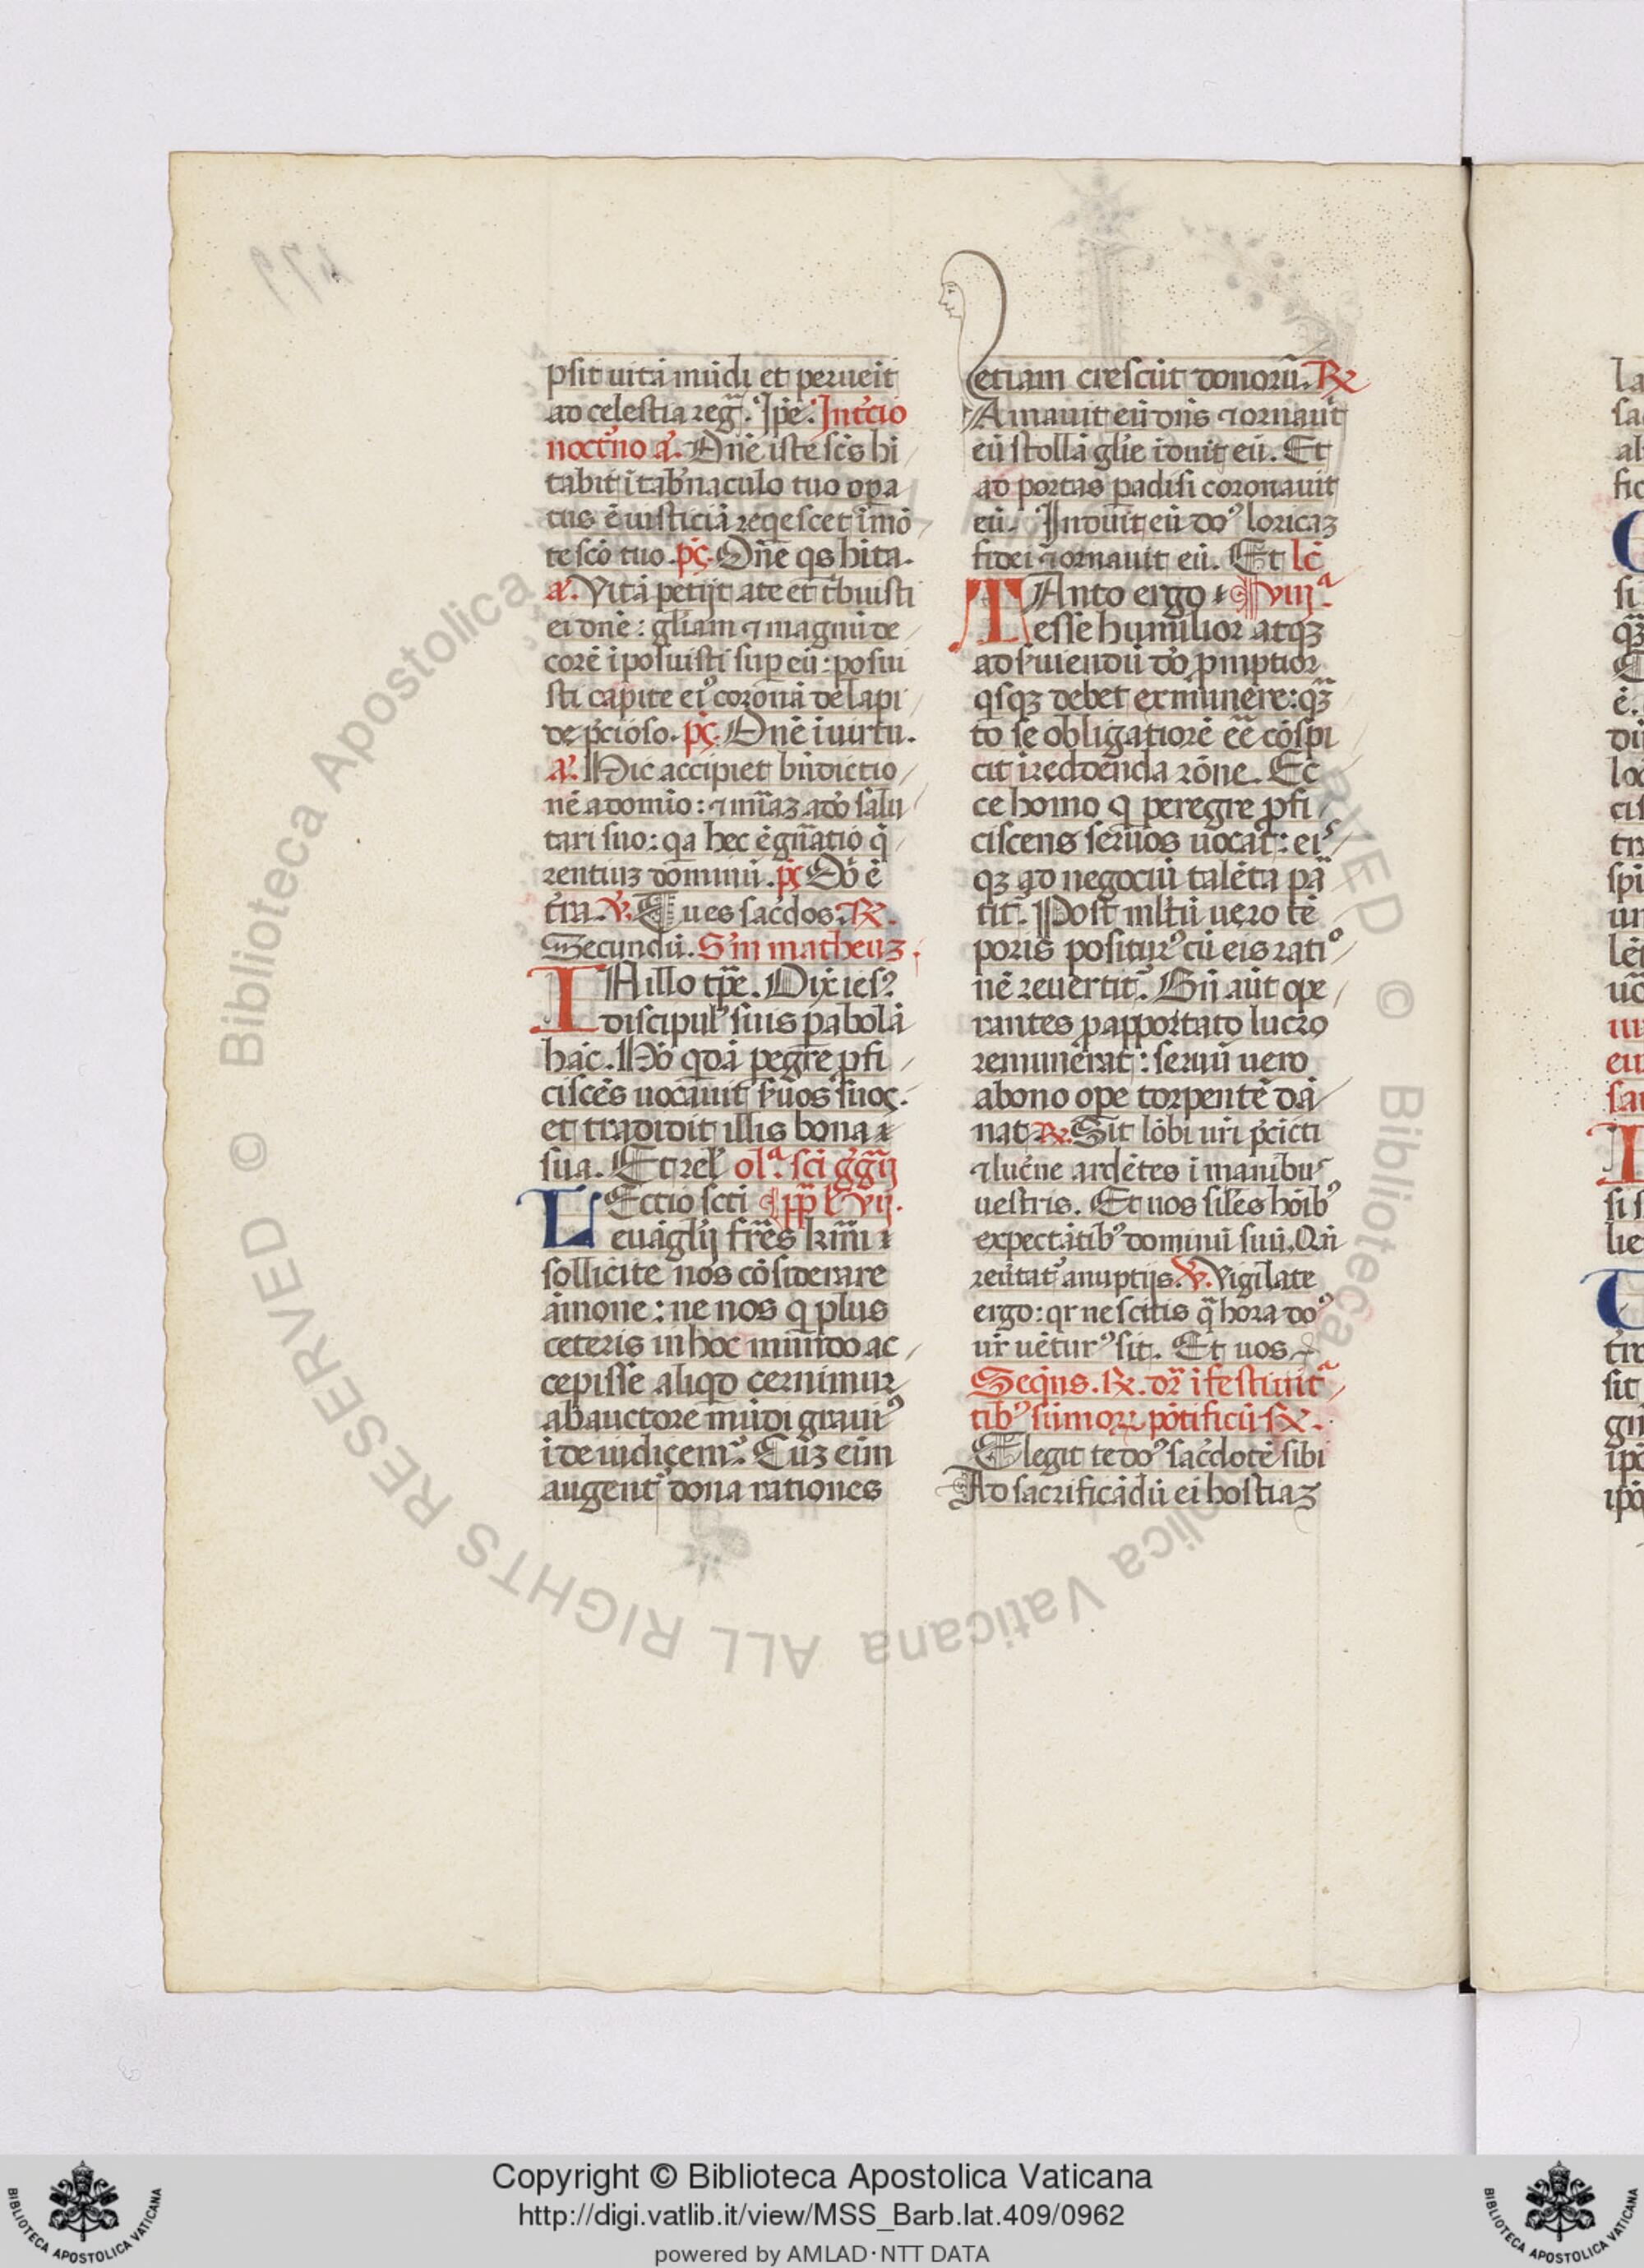 psit uitā mūdi et perueīt
ad celestia reg̃. Ip̃e. In t̃cio
noct̃no a͛. Dn̄e iste sc̄s hi
tabit ī tab̕naculo tuo opa
tus ē iusticiā reqescet ī mō
te scō tuo. ps̄. Dn̄e qs hita.
a͛. Vitā petijt a te et t̕buisti
ei dn̄e: gl̄iam ⁊ magnū de
corē īposuisti sup eū: posui
sti capite eiꝰ coronā de lapi
de p̕cioso. ps̄. Dn̄e ī uirtu.
a͛. Hic accipiet bn̄dictio
nē a domīo: ⁊ mīaꝫ a dō salu
tari suo: qa hec ē gn̄atio q̄
rentiuꝫ dominū. ps̄ Dō ē
t̕ra. ℣. Tu es sac̕dos. ℟.
Secundū. S̕m matheuꝫ.
IN illo tp̄e. Dix̕ iesꝰ
discipul̕ suis pabolā
hāc. Hō qdā pegre pfi
ciscēs uocauit s̕uos suos.
et tradidit illis bona
sua. Et rel̕ ol͛ᵃ. sc̄i g̕g̃ij
LEctio sc̄ti pp̄ l̕ vij.
euāglij fr̄es kr̄mi
sollicite nos cōsiderare
āmone: ne nos q plus
ceteris in hoc mundo ac
cepisse aliqd cernimur
ab auctore mūdi grauiꝰ
īde iudicemᷣ. Cūꝫ eīm
augentᷣ dona rationes
etiam crescūt donorū. ℟
Amauit eū dn̄s ⁊ ornauit
eū stollā gl̄ie īduit eū. Et
ad portas padisi coronauit
eū. Induit eū doꝰ loricaꝫ
fidei ⁊ ornauit eū. Et lc̄
TAnto ergo viijᵃ.
esse humilior atqꝫ
ad s̕uiendū dō pmptior
qsqꝫ debet ex munere: qꝫ̃
to se obligatiorē eē cōspi
cit ī reddenda rōne. Ec
ce homo q peregre pfi
ciscens seruos uocat: eis
qꝫ ad negociū talēta pā
titᷣ. Post ml̄tū uero tē
poris positurꝰ cū eis ratiᵒ
nē reuertitᷣ. Bn̄ aūt ope
rantes p apportato lucro
remunerat: seruū uero
a bono ope torpentē dā
nat. ℟. Sīt lōbi ur̄i p̄cīcti
⁊ lucerne ardētes ī manibus
uestris. Et uos sil̄es hōibꝰ
expectātibꝰ dominū suū. Qn̄
reūtatᷣ a nuptijs. ℣. Vigilate
ergo: qr nescitis q̄ hora doꝰ
ur̄ uēturꝰ sit. Et uos
Seqūs. ℟. dr̄ ī festiuitᵃ
tibꝰ sūmorꝝ pōtificū ℟.
Elegit te doꝰ sac̕dotē sibi
Ad sacrificādū ei hostiaꝫ
Copyright © Biblioteca Apostolica Vaticana
http://digi.vatlib.it/view/MSS_Barb.lat.409/0962
powered by AMLAD·NTT DATA